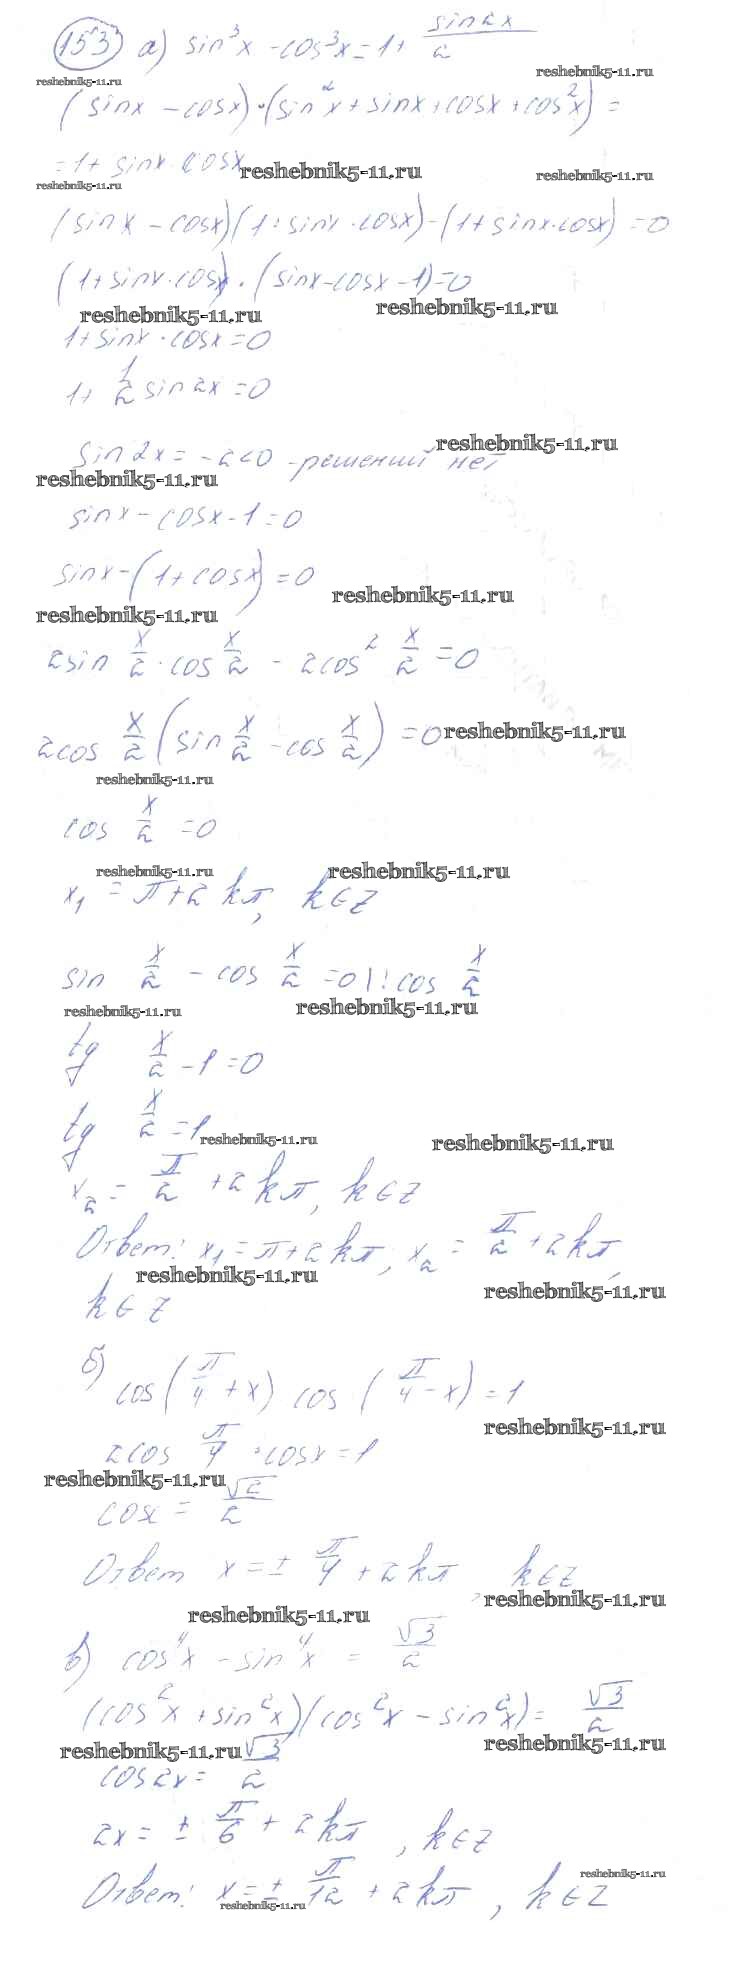 153 а) sin³x - cos³x = 1 + sin2x/2
reshebnik5-11.ru
reshebnik5-11.ru
(sinx - cosx)·(sin²x + sinx·cosx + cos²x) =
= 1 + sinx·cosx
reshebnik5-11.ru
reshebnik5-11.ru
reshebnik5-11.ru
(sinx - cosx)(1 + sinx·cosx) - (1 + sinx·cosx) = 0
(1 + sinx·cosx)·(sinx - cosx - 1) = 0
reshebnik5-11.ru
reshebnik5-11.ru
1 + sinx·cosx = 0
1 + 1/2 sin2x = 0
reshebnik5-11.ru
sin2x = -2<0 - решений нет
reshebnik5-11.ru
sinx - cosx - 1 = 0
sinx - (1 + cosx) = 0
reshebnik5-11.ru
reshebnik5-11.ru
2sin x/2 · cos x/2 - 2cos² x/2 = 0
2cos x/2 (sin x/2 - cos x/2) = 0
reshebnik5-11.ru
reshebnik5-11.ru
cos x/2 = 0
reshebnik5-11.ru
reshebnik5-11.ru
x₁ = π + 2kπ, k∈Z
sin x/2 - cos x/2 = 0 |: cos x/2
reshebnik5-11.ru
reshebnik5-11.ru
tg x/2 - 1 = 0
tg x/2 = 1
reshebnik5-11.ru
reshebnik5-11.ru
x₂ = π/2 + 2kπ, k∈Z
Ответ: x₁ = π + 2kπ; x₂ = π/2 + 2kπ,
reshebnik5-11.ru
reshebnik5-11.ru
k∈Z
б)
cos(π/4 + x) cos(π/4 - x) = 1
reshebnik5-11.ru
2cos π/4 · cosx = 1
reshebnik5-11.ru
cosx = √2/2
Ответ x = ± π/4 + 2kπ, k∈Z
reshebnik5-11.ru
reshebnik5-11.ru
в) cos⁴x - sin⁴x = √3/2
(cos²x + sin²x)(cos²x - sin²x) = √3/2
reshebnik5-11.ru
reshebnik5-11.ru
cos2x = √3/2
2x = ± π/6 + 2kπ, k∈Z
reshebnik5-11.ru
Ответ: x = ± π/12 + 2kπ, k∈Z
reshebnik5-11.ru